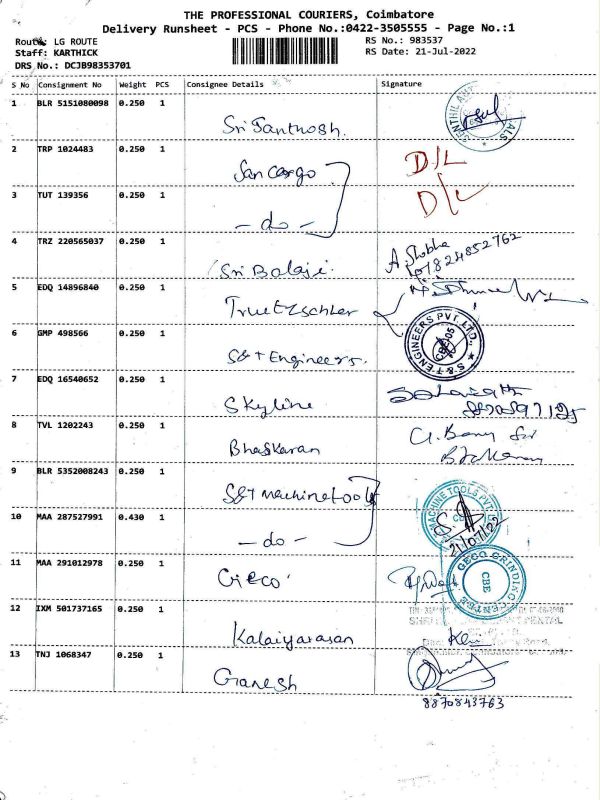 THE PROFESSIONAL COURIERS, Coimbatore
Delivery Runsheet - PCS - Phone No.:0422-3505555 - Page No.:1
Route: LG ROUTE
RS No.: 983537
Staff: KARTHICK
RS Date: 21-Jul-2022
DRS No.: DCJB98353701
S No Consignment No Weight PCS Consignee Details Signature
1 BLR 5151080098 0.250 1 Sri Santhosh.
2 TRP 1024483 0.250 1 San cargo D/L
3 TUT 139356 0.250 1 - do - D/L
4 TRZ 220565037 0.250 1 Sri Balaji. A. Shobha
7824852762
5 EDQ 14896840 0.250 1 Truetzschler
6 GMP 498566 0.250 1 S&T Engineers. S & T ENGINEERS PVT. LTD.
7 EDQ 16540652 0.250 1 Skyline
8 TVL 1202243 0.250 1 Bhaskaran
9 BLR 5352008243 0.250 1 S&T machine tools MACHINE TOOLS PVT
10 MAA 287527991 0.430 1 - do - 21/07/22
11 MAA 291012978 0.250 1 Gieco GECO GRINDING CENTRE
CBE
12 IXM 501737165 0.250 1 Kalaiyarasan
13 TNJ 1068347 0.250 1 Ganesh
8870843763